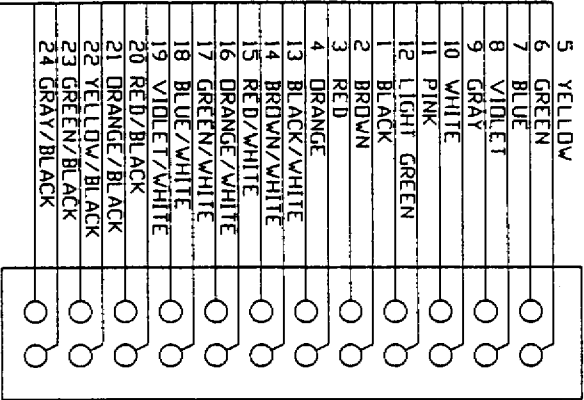 5 YELLOW
6 GREEN
7 BLUE
8 VIOLET
9 GRAY
10 WHITE
11 PINK
12 LIGHT GREEN
1 BLACK
2 BROWN
3 RED
4 ORANGE
13 BLACK/WHITE
14 BROWN/WHITE
15 RED/WHITE
16 ORANGE/WHITE
17 GREEN/WHITE
18 BLUE/WHITE
19 VIOLET/WHITE
20 RED/BLACK
21 ORANGE/BLACK
22 YELLOW/BLACK
23 GREEN/BLACK
24 GRAY/BLACK